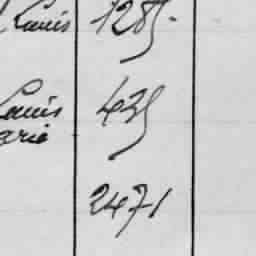 Louis 1285.
Louis 435
arie
2471